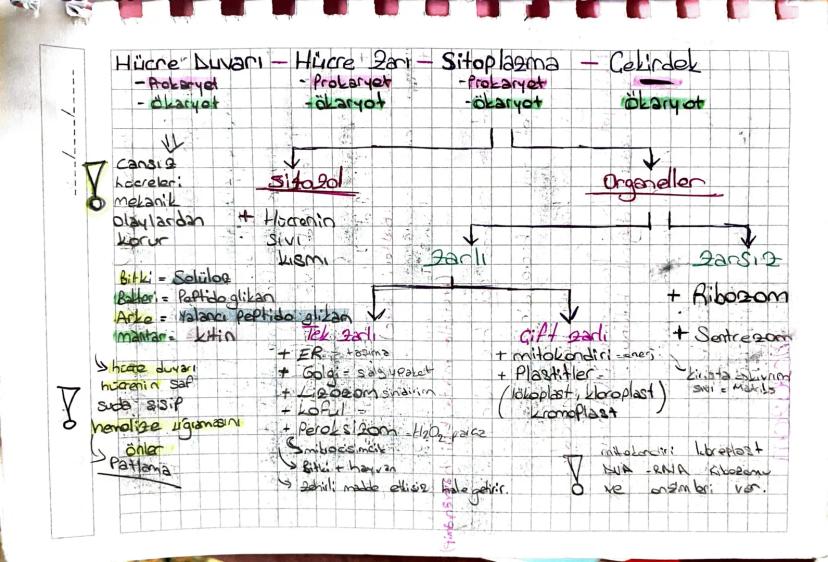 Hücre Duvarı - Hücre Zarı - Sitoplazma - Çekirdek
- Prokaryot
- ökaryot
- Prokaryot
- ökaryot
- Prokaryot
- ökaryot
ökaryot
Cansız
hücreleri
mekanik
olaylardan
korur
Sitozol
+ Hücrenin
sıvı
kısmı
Organeller
Zarlı
Zarsız
+ Ribozom
+ Sentrezom
Bitki = Selüloz
Bakteri = Peptidoglikan
Arke = Yalancı peptidoglikan
mantar = kitin
Tek zarlı
+ ER = taşıma
+ Golgi = salgı paket
+ Lizozom sindirim
+ Koful =
+ Peroksizom = H₂O₂ parça
Bitki + hayvan
zehirli madde etkisiz hale getirir.
Çift zarlı
+ mitokondiri = enerji
+ Plastitler
(lökoplast, kloroplast)
kromoplast
hücre duvarı
hücrenin saf
suda şişip
hemolize uğramasını
önler
Patlama
DNA - RNA ribozomu
ve enzimleri var.